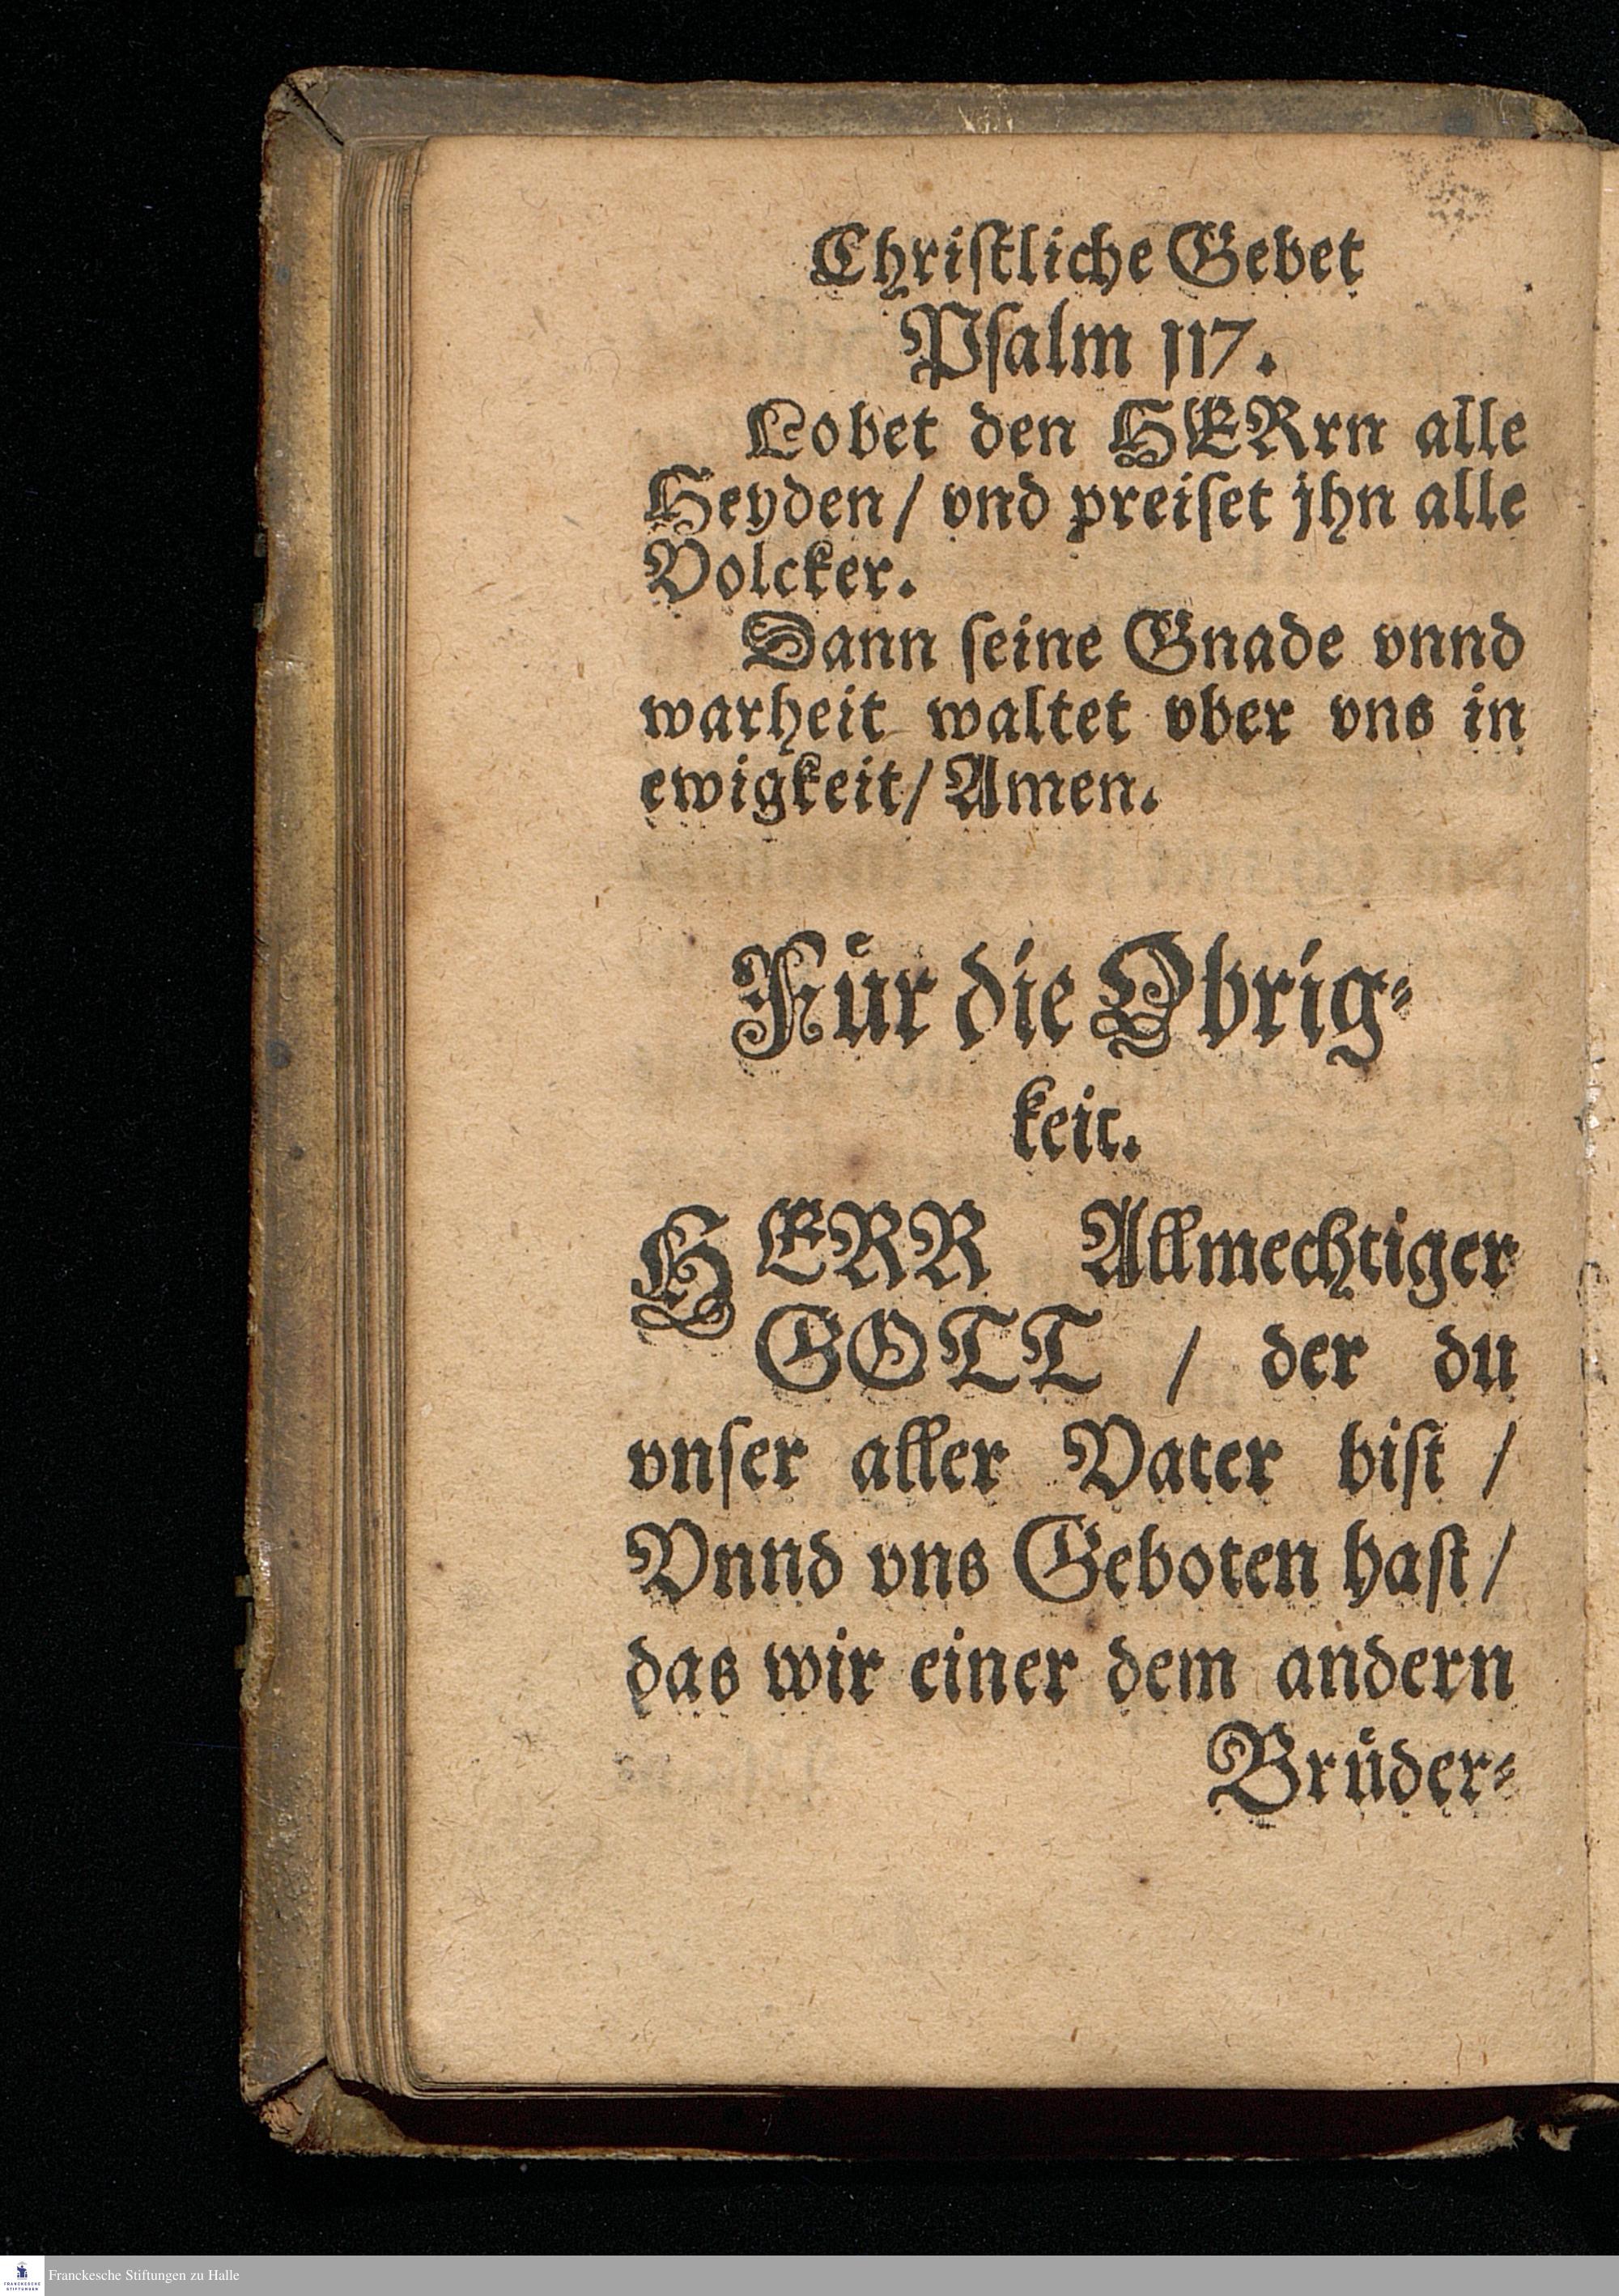 Chriſtliche Gebet
Pſalm 117.
Lobet den HERrn alle
Heyden / vnd preiſet jhn alle
Volcker.
Dann ſeine Gnade vnnd
warheit waltet vber vns in
ewigkeit / Amen.
Fuͤr die Obrig⸗
keit.
HERR Allmechtiger
GOTT / der du
vnſer aller Vater biſt /
Vnnd vns Geboten haſt /
das wir einer dem andern
Bruͤder⸗
Franckesche Stiftungen zu Halle
FRANCKESCHE
STIFTUNGEN